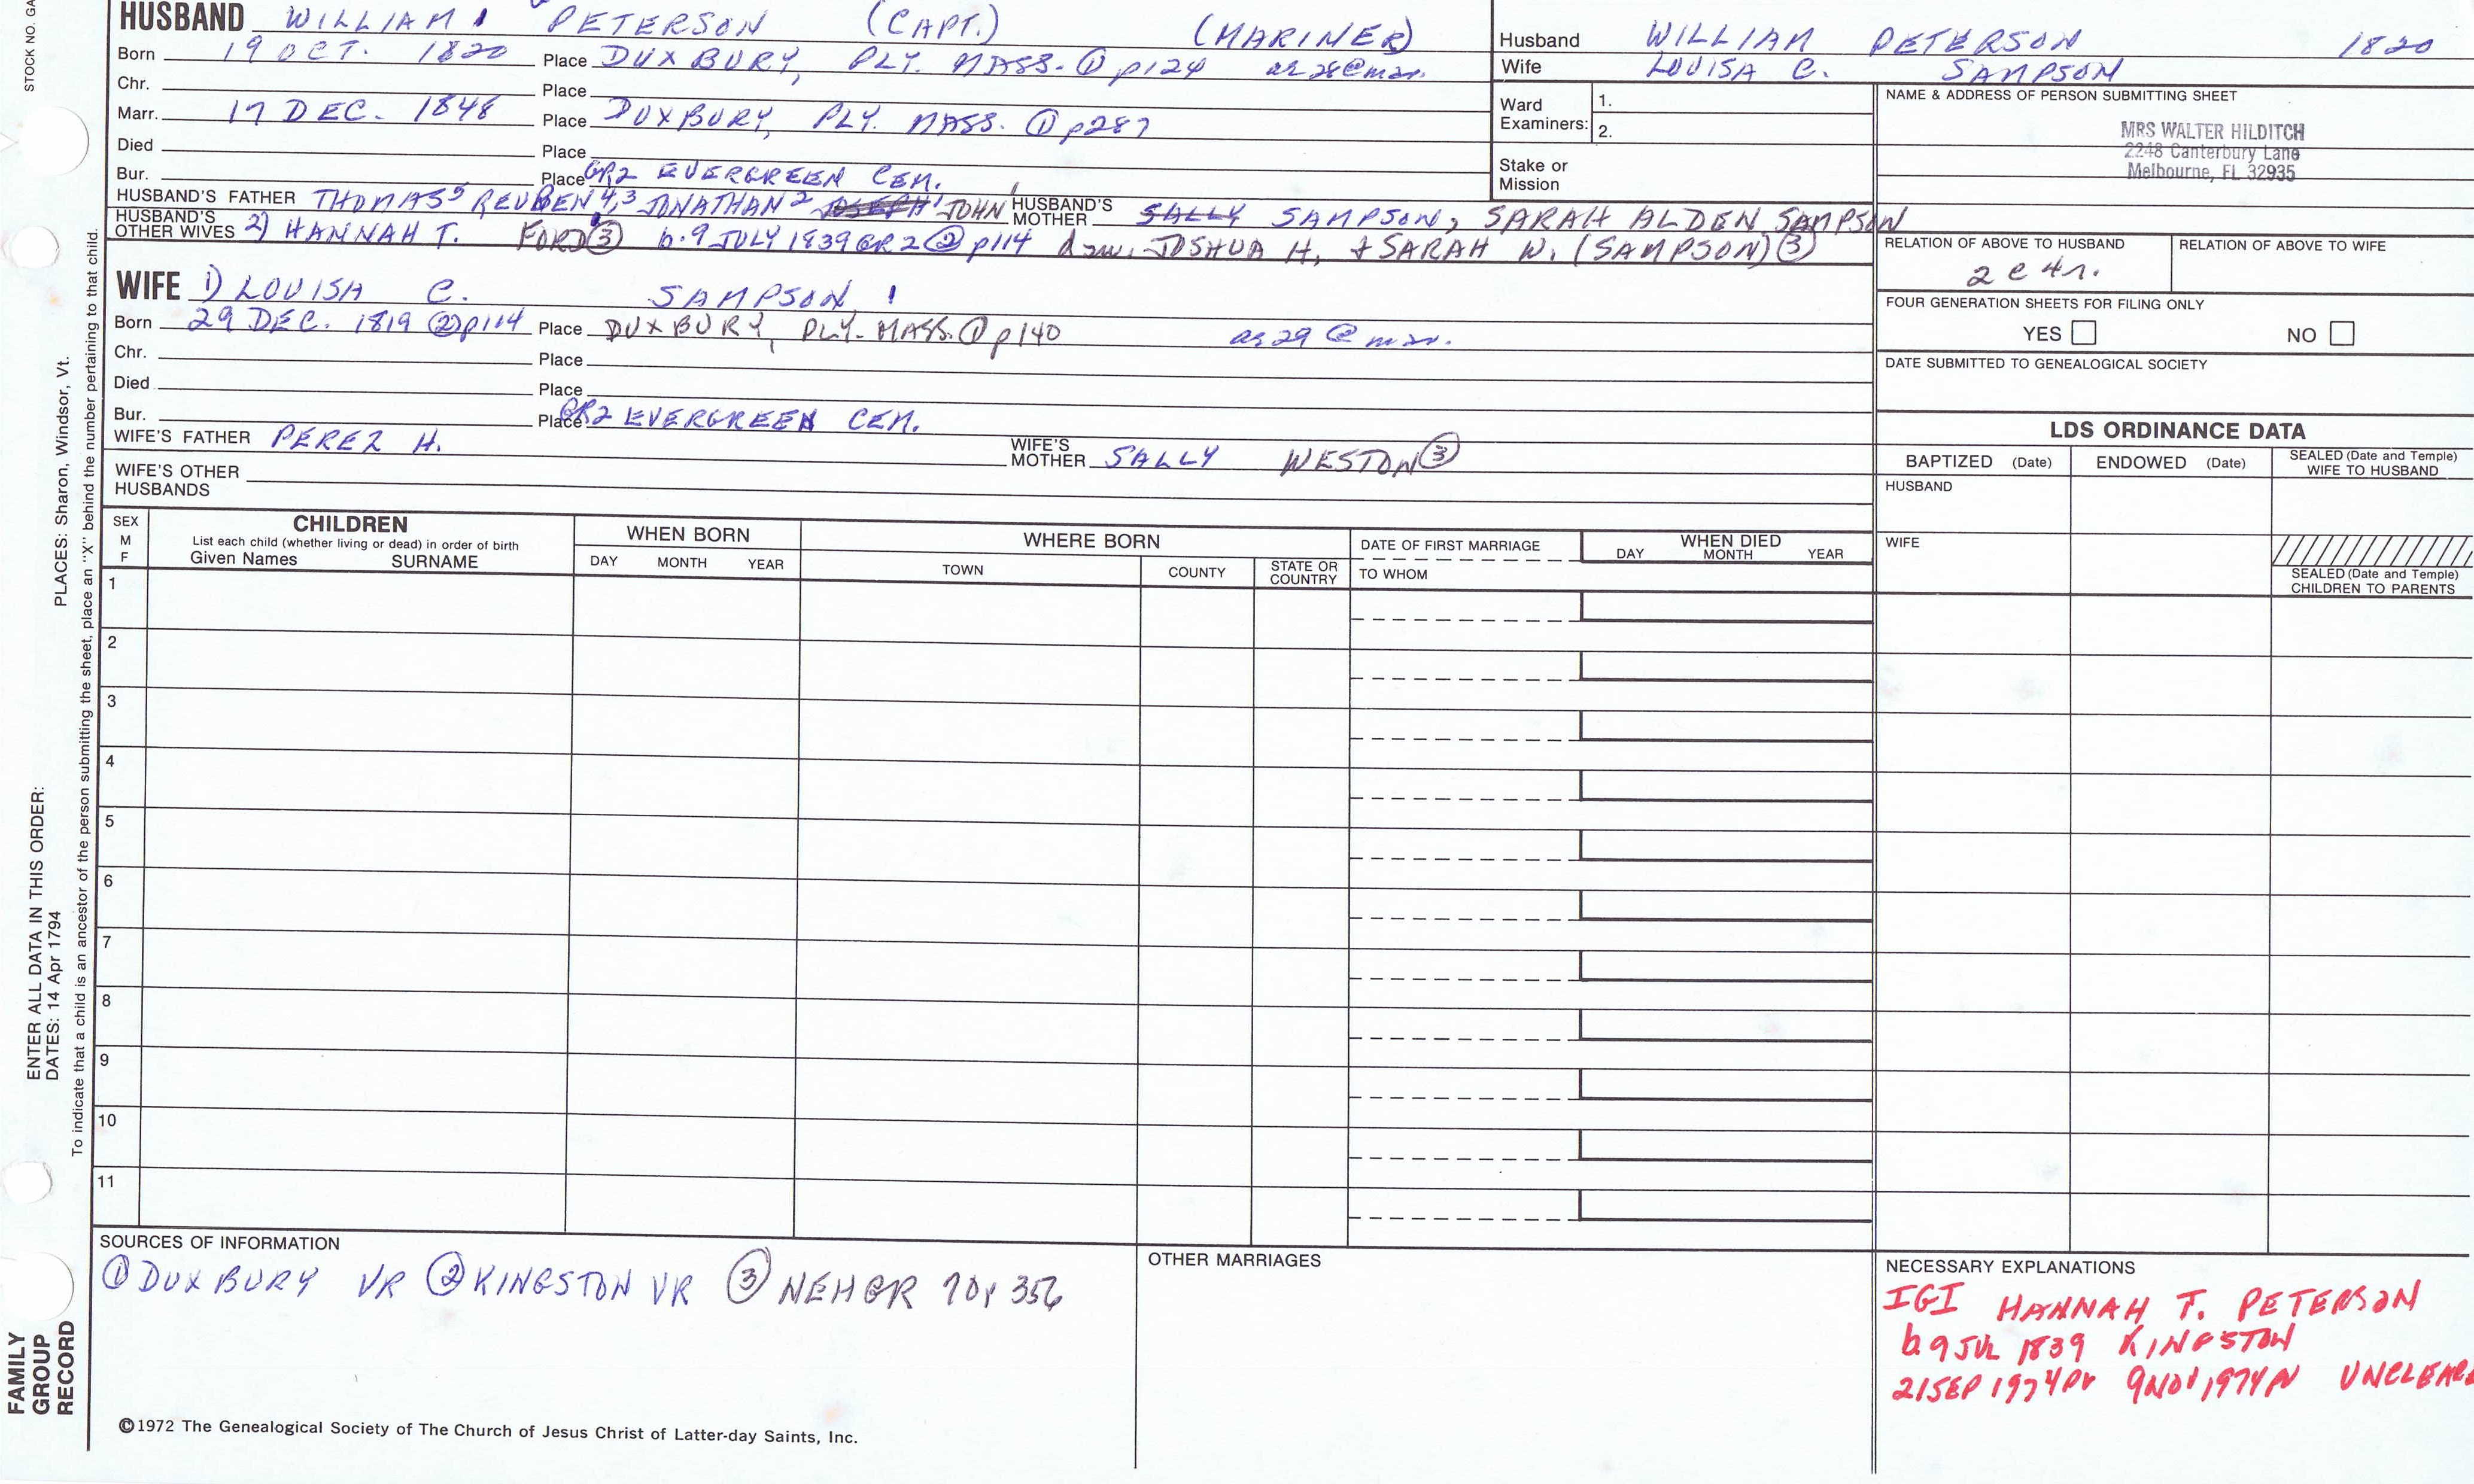 STOCK NO. GA
HUSBAND WILLIAM PETERSON (CAPT.) (MARINER)
Born 19 OCT. 1820 Place DUXBURY, PLY. MASS. ① p124 as 28 @ mar.
Chr. Place
Marr. 17 DEC. 1848 Place DUXBURY, PLY. MASS. ① p287
Died Place
Bur. Place GR2 EVERGREEN CEM.
HUSBAND'S FATHER THOMAS5 REUBEN 4,3 JONATHAN2 JOSEPH1 JOHN HUSBAND'S MOTHER SALLY SAMPSON, SARAH ALDEN SAMPSON
HUSBAND'S OTHER WIVES 2) HANNAH T. FORD ③ b. 9 JULY 1839 GR2 ② p114 dau. JOSHUA H. + SARAH W. (SAMPSON) ③
WIFE 1) LOUISA C. SAMPSON
Born 29 DEC. 1819 ② p114 Place DUXBURY, PLY. MASS. ① p140 as 29 @ mar.
Chr. Place
Died Place
Bur. Place GR2 EVERGREEN CEM.
WIFE'S FATHER PEREZ H. WIFE'S MOTHER SALLY WESTON ③
WIFE'S OTHER
HUSBANDS
Husband WILLIAM PETERSON 1820
Wife LOUISA C. SAMPSON
Ward Examiners: 1.
2.
Stake or
Mission
NAME & ADDRESS OF PERSON SUBMITTING SHEET
MRS WALTER HILDITCH
2248 Canterbury Lane
Melbourne, FL 32935
RELATION OF ABOVE TO HUSBAND RELATION OF ABOVE TO WIFE
2 c 4 r.
FOUR GENERATION SHEETS FOR FILING ONLY
YES NO
DATE SUBMITTED TO GENEALOGICAL SOCIETY
LDS ORDINANCE DATA
BAPTIZED (Date) ENDOWED (Date) SEALED (Date and Temple) WIFE TO HUSBAND
HUSBAND
WIFE
SEALED (Date and Temple)
CHILDREN TO PARENTS
SEX
M
F
CHILDREN
List each child (whether living or dead) in order of birth
Given Names SURNAME
WHEN BORN
DAY MONTH YEAR
WHERE BORN
TOWN COUNTY STATE OR COUNTRY
DATE OF FIRST MARRIAGE
TO WHOM
WHEN DIED
DAY MONTH YEAR
1
2
3
4
5
6
7
8
9
10
11
SOURCES OF INFORMATION
① DUXBURY VR ② KINGSTON VR ③ NEHGR 70p 356
OTHER MARRIAGES
NECESSARY EXPLANATIONS
IGI HANNAH T. PETERSON
b. 9 JUL 1839 KINGSTON
21SEP 1974PV 9NOV1974PV
©1972 The Genealogical Society of The Church of Jesus Christ of Latter-day Saints, Inc.
PLACES: Sharon, Windsor, Vt.
ENTER ALL DATA IN THIS ORDER:
DATES: 14 Apr 1794
To indicate that a child is an ancestor of the person submitting the sheet, place an "X" behind the number pertaining to that child.
FAMILY
GROUP
RECORD